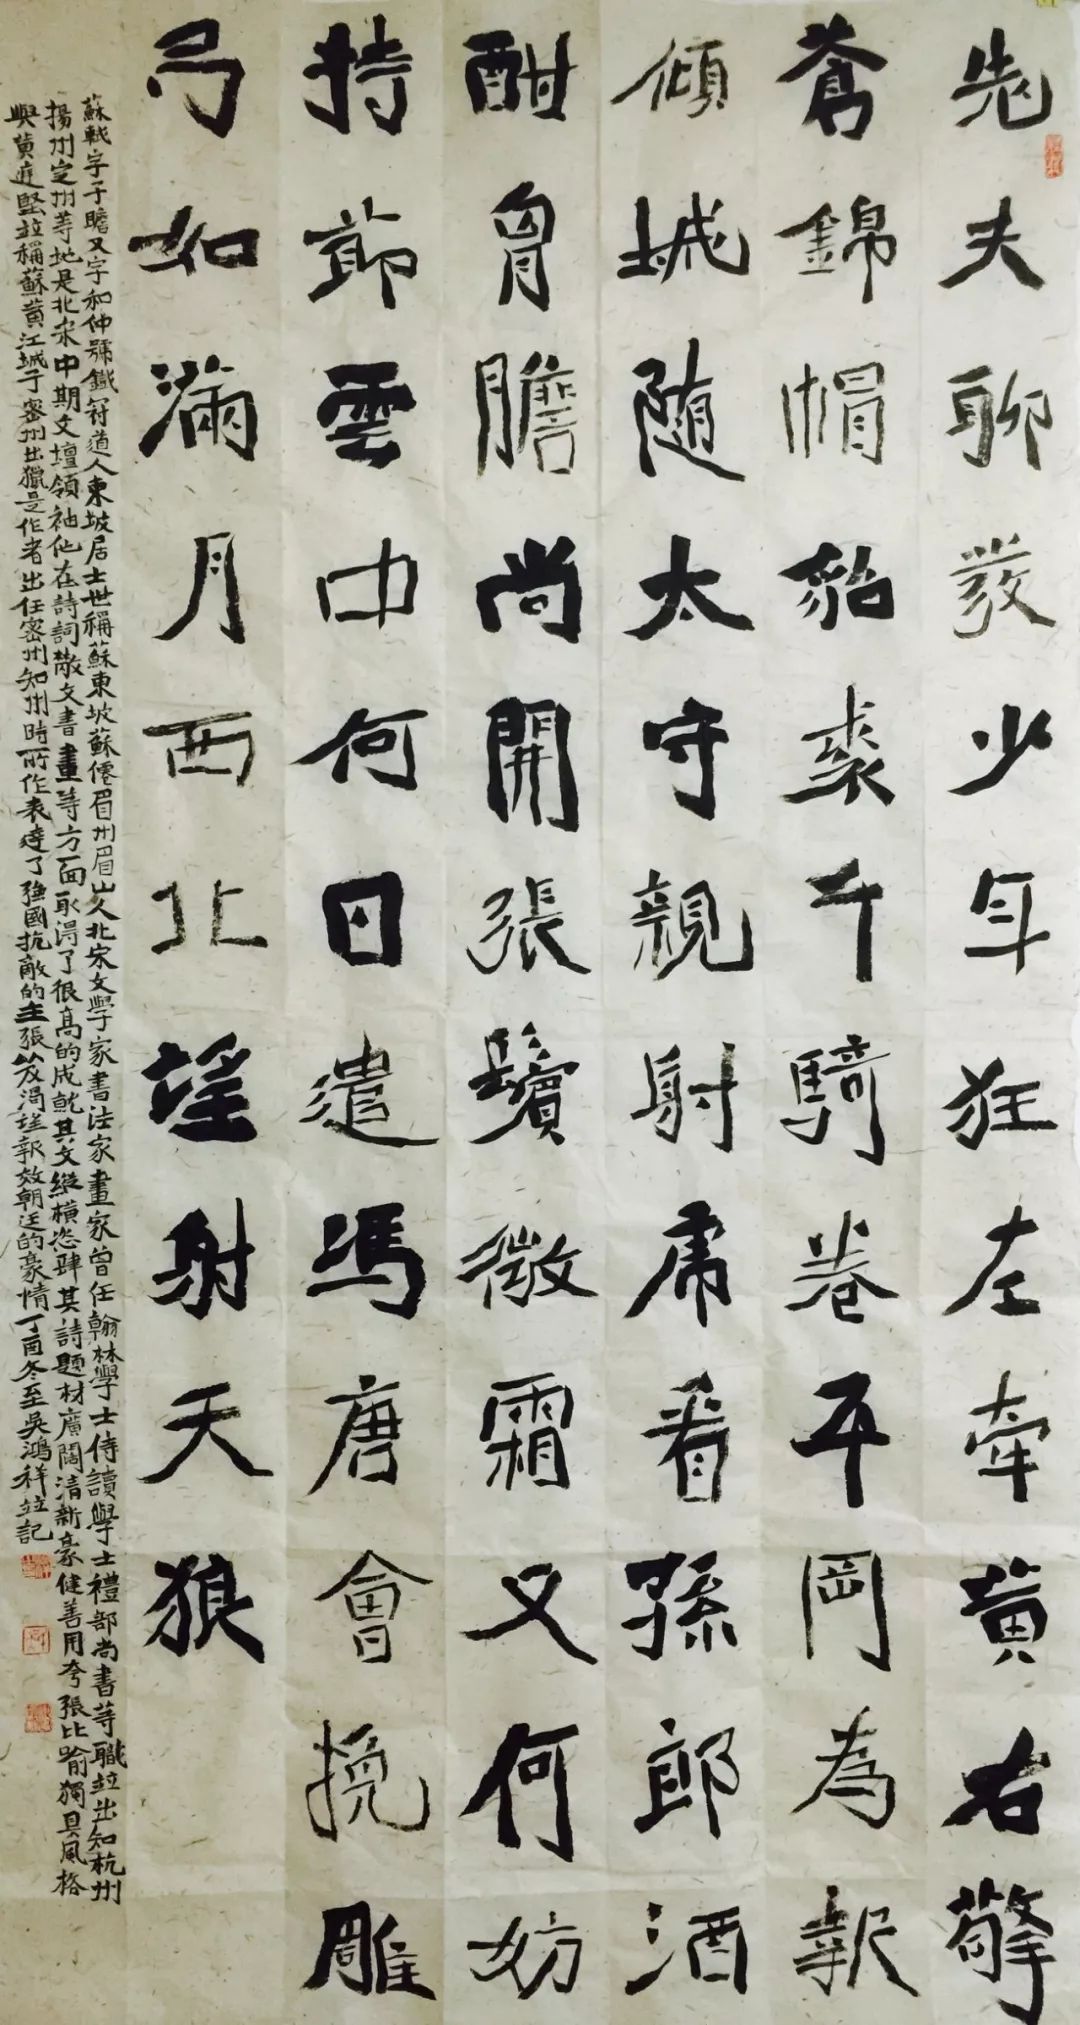 老夫聊發少年狂左牽黃右擎
蒼錦帽貂裘千騎卷平岡為報
傾城随太守親射虎看孫郎酒
酣胷膽尚開張鬢微霜又何妨
持節雲中何日遣馮唐會挽雕
弓如滿月西北望射天狼
蘇軾字子瞻又字和仲號鐵冠道人東坡居士世稱蘇東坡蘇僊眉州眉山人北宋文學家書法家畫家曾任翰林學士侍讀學士禮部尚書等職並出知杭州
揚州定州等地是北宋中期文壇領袖他在詩詞散文書畫等方面取得了很高的成就其文縱橫恣肆其詩題材廣闊清新豪健善用夸張比喻獨具風格
與黃庭堅並稱蘇黃江城子密州出獵是作者出任密州知州時所作表達了強國抗敵的主張及渴望報效朝廷的豪情丁酉冬至吳鴻祥並記